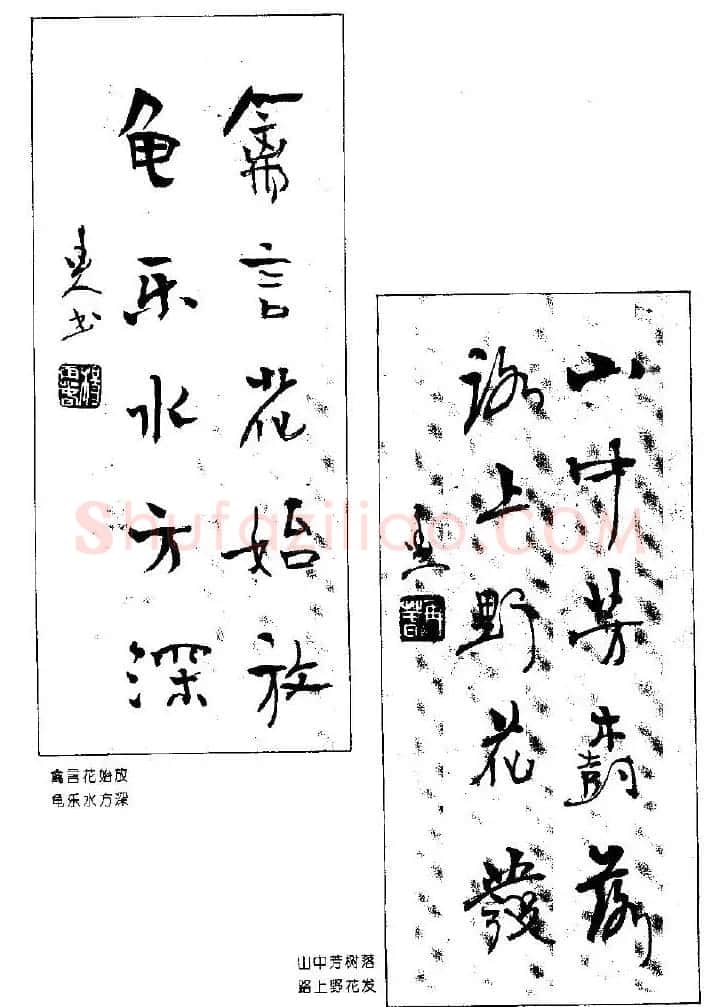 禽言花始放
龟乐水方深
书
禽言花始放
龟乐水方深
山中芳樹落
路上野花發
山中芳树落
路上野花发
Shufaziliao.COM